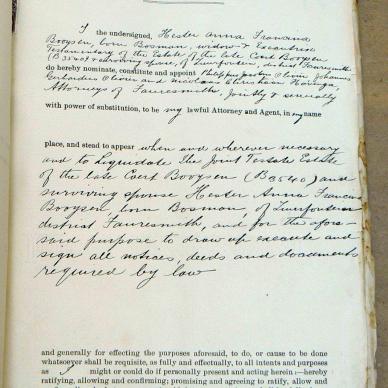 I the undersigned, Hester Anna Francina
Booysen, born Bosman, widow & Executrix
Testamentary of the Estate of the late Coert Booysen
(B3540) & surviving spouse, of district Fauresmith
do hereby nominate, constitute and appoint Philippus Jacobus Olivier Johannes
Gerhardus Olivier and Nicolaas Christiaan Havenga,
Attorneys of Fauresmith, jointly & severally
with power of substitution, to be my lawful Attorney and Agent, in my name
place, and stead to appear when and wherever necessary
and to Liquidate the Joint Testate Estate
of the late Coert Booysen (B3540) and
surviving spouse Hester Anna Francina
Booysen, born Bosman, of
district Fauresmith, and for the afore-
said purpose to draw up execute and
sign all notices, deeds and documents
required by law
and generally for effecting the purposes aforesaid, to do, or cause to be done
whatsoever shall be requisite, as fully and effectually, to all intents and purposes
as I might or could do if personally present and acting herein :—hereby
ratifying, allowing and confirming; promising and agreeing to ratify, allow and